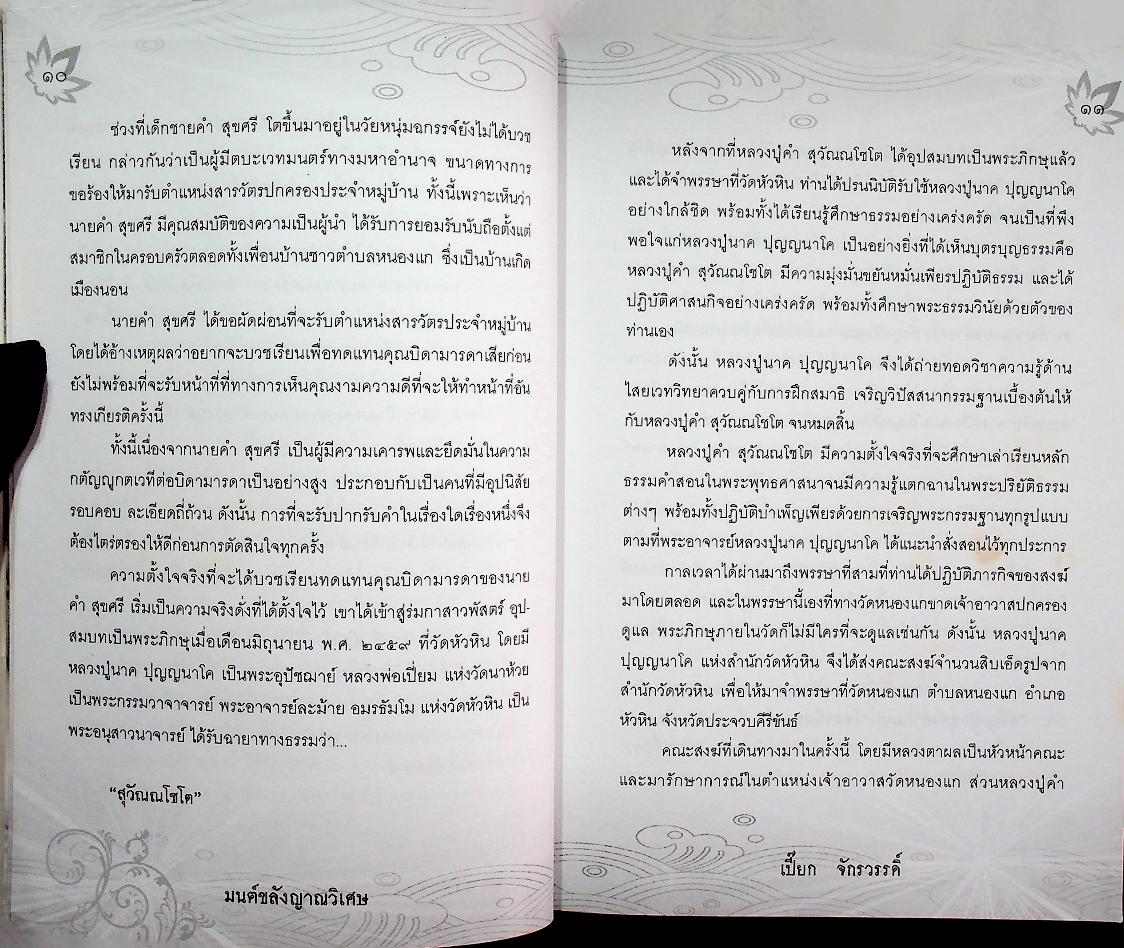 ๑๐
ช่วงที่เด็กชายคำ สุขศรี โตขึ้นมาอยู่ในวัยหนุ่มฉกรรจ์ยังไม่ได้บวช
เรียน กล่าวกันว่าเป็นผู้มีตบะเวทมนตร์ทางมหาอำนาจ ขนาดทางการ
ขอร้องให้มารับตำแหน่งสารวัตรปกครองประจำหมู่บ้าน ทั้งนี้เพราะเห็นว่า
นายคำ สุขศรี มีคุณสมบัติของความเป็นผู้นำ ได้รับการยอมรับนับถือตั้งแต่
สมาชิกในครอบครัวตลอดทั้งเพื่อนบ้านชาวตำบลหนองแก ซึ่งเป็นบ้านเกิด
เมืองนอน
นายคำ สุขศรี ได้ขอผัดผ่อนที่จะรับตำแหน่งสารวัตรประจำหมู่บ้าน
โดยได้อ้างเหตุผลว่าอยากจะบวชเรียนเพื่อทดแทนคุณบิดามารดาเสียก่อน
ยังไม่พร้อมที่จะรับหน้าที่ที่ทางการเห็นคุณงามความดีที่จะให้ทำหน้าที่อัน
ทรงเกียรติครั้งนี้
ทั้งนี้เนื่องจากนายคำ สุขศรี เป็นผู้มีความเคารพและยึดมั่นในความ
กตัญญูกตเวทีต่อบิดามารดาเป็นอย่างสูง ประกอบกับเป็นคนที่มีอุปนิสัย
รอบคอบ ละเอียดถี่ถ้วน ดังนั้น การที่จะรับปากรับคำในเรื่องใดเรื่องหนึ่งจึง
ต้องไตร่ตรองให้ดีก่อนการตัดสินใจทุกครั้ง
ความตั้งใจจริงที่จะได้บวชเรียนทดแทนคุณบิดามารดาของนาย
คำ สุขศรี เริ่มเป็นความจริงดั่งที่ได้ตั้งใจไว้ เขาได้เข้าสู่ร่มกาสาวพัสตร์ อุป-
สมบทเป็นพระภิกษุเมื่อเดือนมิถุนายน พ.ศ. ๒๔๕๙ ที่วัดหัวหิน โดยมี
หลวงปู่นาค ปุญญนาโค เป็นพระอุปัชฌาย์ หลวงพ่อเปี่ยม แห่งวัดนาห้วย
เป็นพระกรรมวาจาจารย์ พระอาจารย์ละม้าย อมรธัมโม แห่งวัดหัวหิน เป็น
พระอนุสาวนาจารย์ ได้รับฉายาทางธรรมว่า...
“สุวัณณโชโต”
มนต์ขลังญาณวิเศษ
๑๑
หลังจากที่หลวงปู่คำ สุวัณณโชโต ได้อุปสมบทเป็นพระภิกษุแล้ว
และได้จำพรรษาที่วัดหัวหิน ท่านได้ปรนนิบัติรับใช้หลวงปู่นาค ปุญญนาโค
อย่างใกล้ชิด พร้อมทั้งได้เรียนรู้ศึกษาธรรมอย่างเคร่งครัด จนเป็นที่พึง
พอใจแก่หลวงปู่นาค ปุญญนาโค เป็นอย่างยิ่งที่ได้เห็นบุตรบุญธรรมคือ
หลวงปู่คำ สุวัณณโชโต มีความมุ่งมั่นขยันหมั่นเพียรปฏิบัติธรรม และได้
ปฏิบัติศาสนกิจอย่างเคร่งครัด พร้อมทั้งศึกษาพระธรรมวินัยด้วยตัวของ
ท่านเอง
ดังนั้น หลวงปู่นาค ปุญญนาโค จึงได้ถ่ายทอดวิชาความรู้ด้าน
ไสยเวทวิทยาควบคู่กับการฝึกสมาธิ เจริญวิปัสสนากรรมฐานเบื้องต้นให้
กับหลวงปู่คำ สุวัณณโชโต จนหมดสิ้น
หลวงปู่คำ สุวัณณโชโต มีความตั้งใจจริงที่จะศึกษาเล่าเรียนหลัก
ธรรมคำสอนในพระพุทธศาสนาจนมีความรู้แตกฉานในพระปริยัติธรรม
ต่างๆ พร้อมทั้งปฏิบัติบำเพ็ญเพียรด้วยการเจริญพระกรรมฐานทุกรูปแบบ
ตามที่พระอาจารย์หลวงปู่นาค ปุญญนาโค ได้แนะนำสั่งสอนไว้ทุกประการ
กาลเวลาได้ผ่านมาถึงพรรษาที่สามที่ท่านได้ปฏิบัติภารกิจของสงฆ์
มาโดยตลอด และในพรรษานี้เองที่ทางวัดหนองแกขาดเจ้าอาวาสปกครอง
ดูแล พระภิกษุภายในวัดก็ไม่มีใครที่จะดูแลเช่นกัน ดังนั้น หลวงปู่นาค
ปุญญนาโค แห่งสำนักวัดหัวหิน จึงได้ส่งคณะสงฆ์จำนวนสิบเอ็ดรูปจาก
สำนักวัดหัวหิน เพื่อให้มาจำพรรษาที่วัดหนองแก ตำบลหนองแก อำเภอ
หัวหิน จังหวัดประจวบคีรีขันธ์
คณะสงฆ์ที่เดินทางมาในครั้งนี้ โดยมีหลวงตาผลเป็นหัวหน้าคณะ
และมารักษาการณ์ในตำแหน่งเจ้าอาวาสวัดหนองแก ส่วนหลวงปู่คำ
เปี๊ยก จักรวรรดิ์